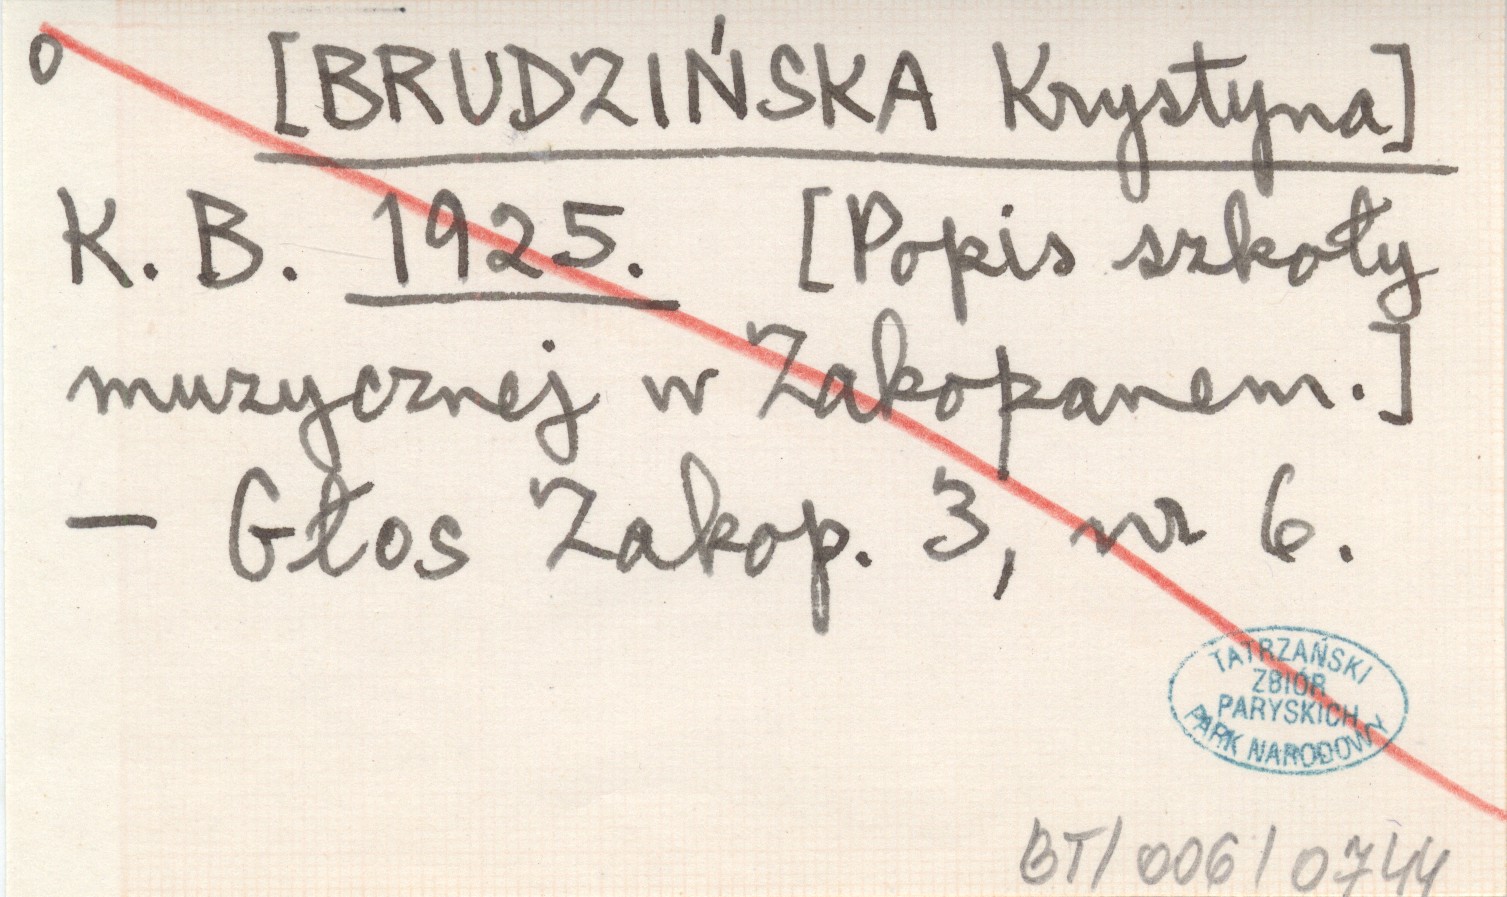 o [BRUDZIŃSKA Krystyna]
K. B. 1925. [Popis szkoły
muzycznej w Zakopanem.]
— Głos Zakop. 3, nr 6.
TATRZAŃSKI
ZBIÓR
PARYSKICH
PARK NARODOWY
BT/006/0744